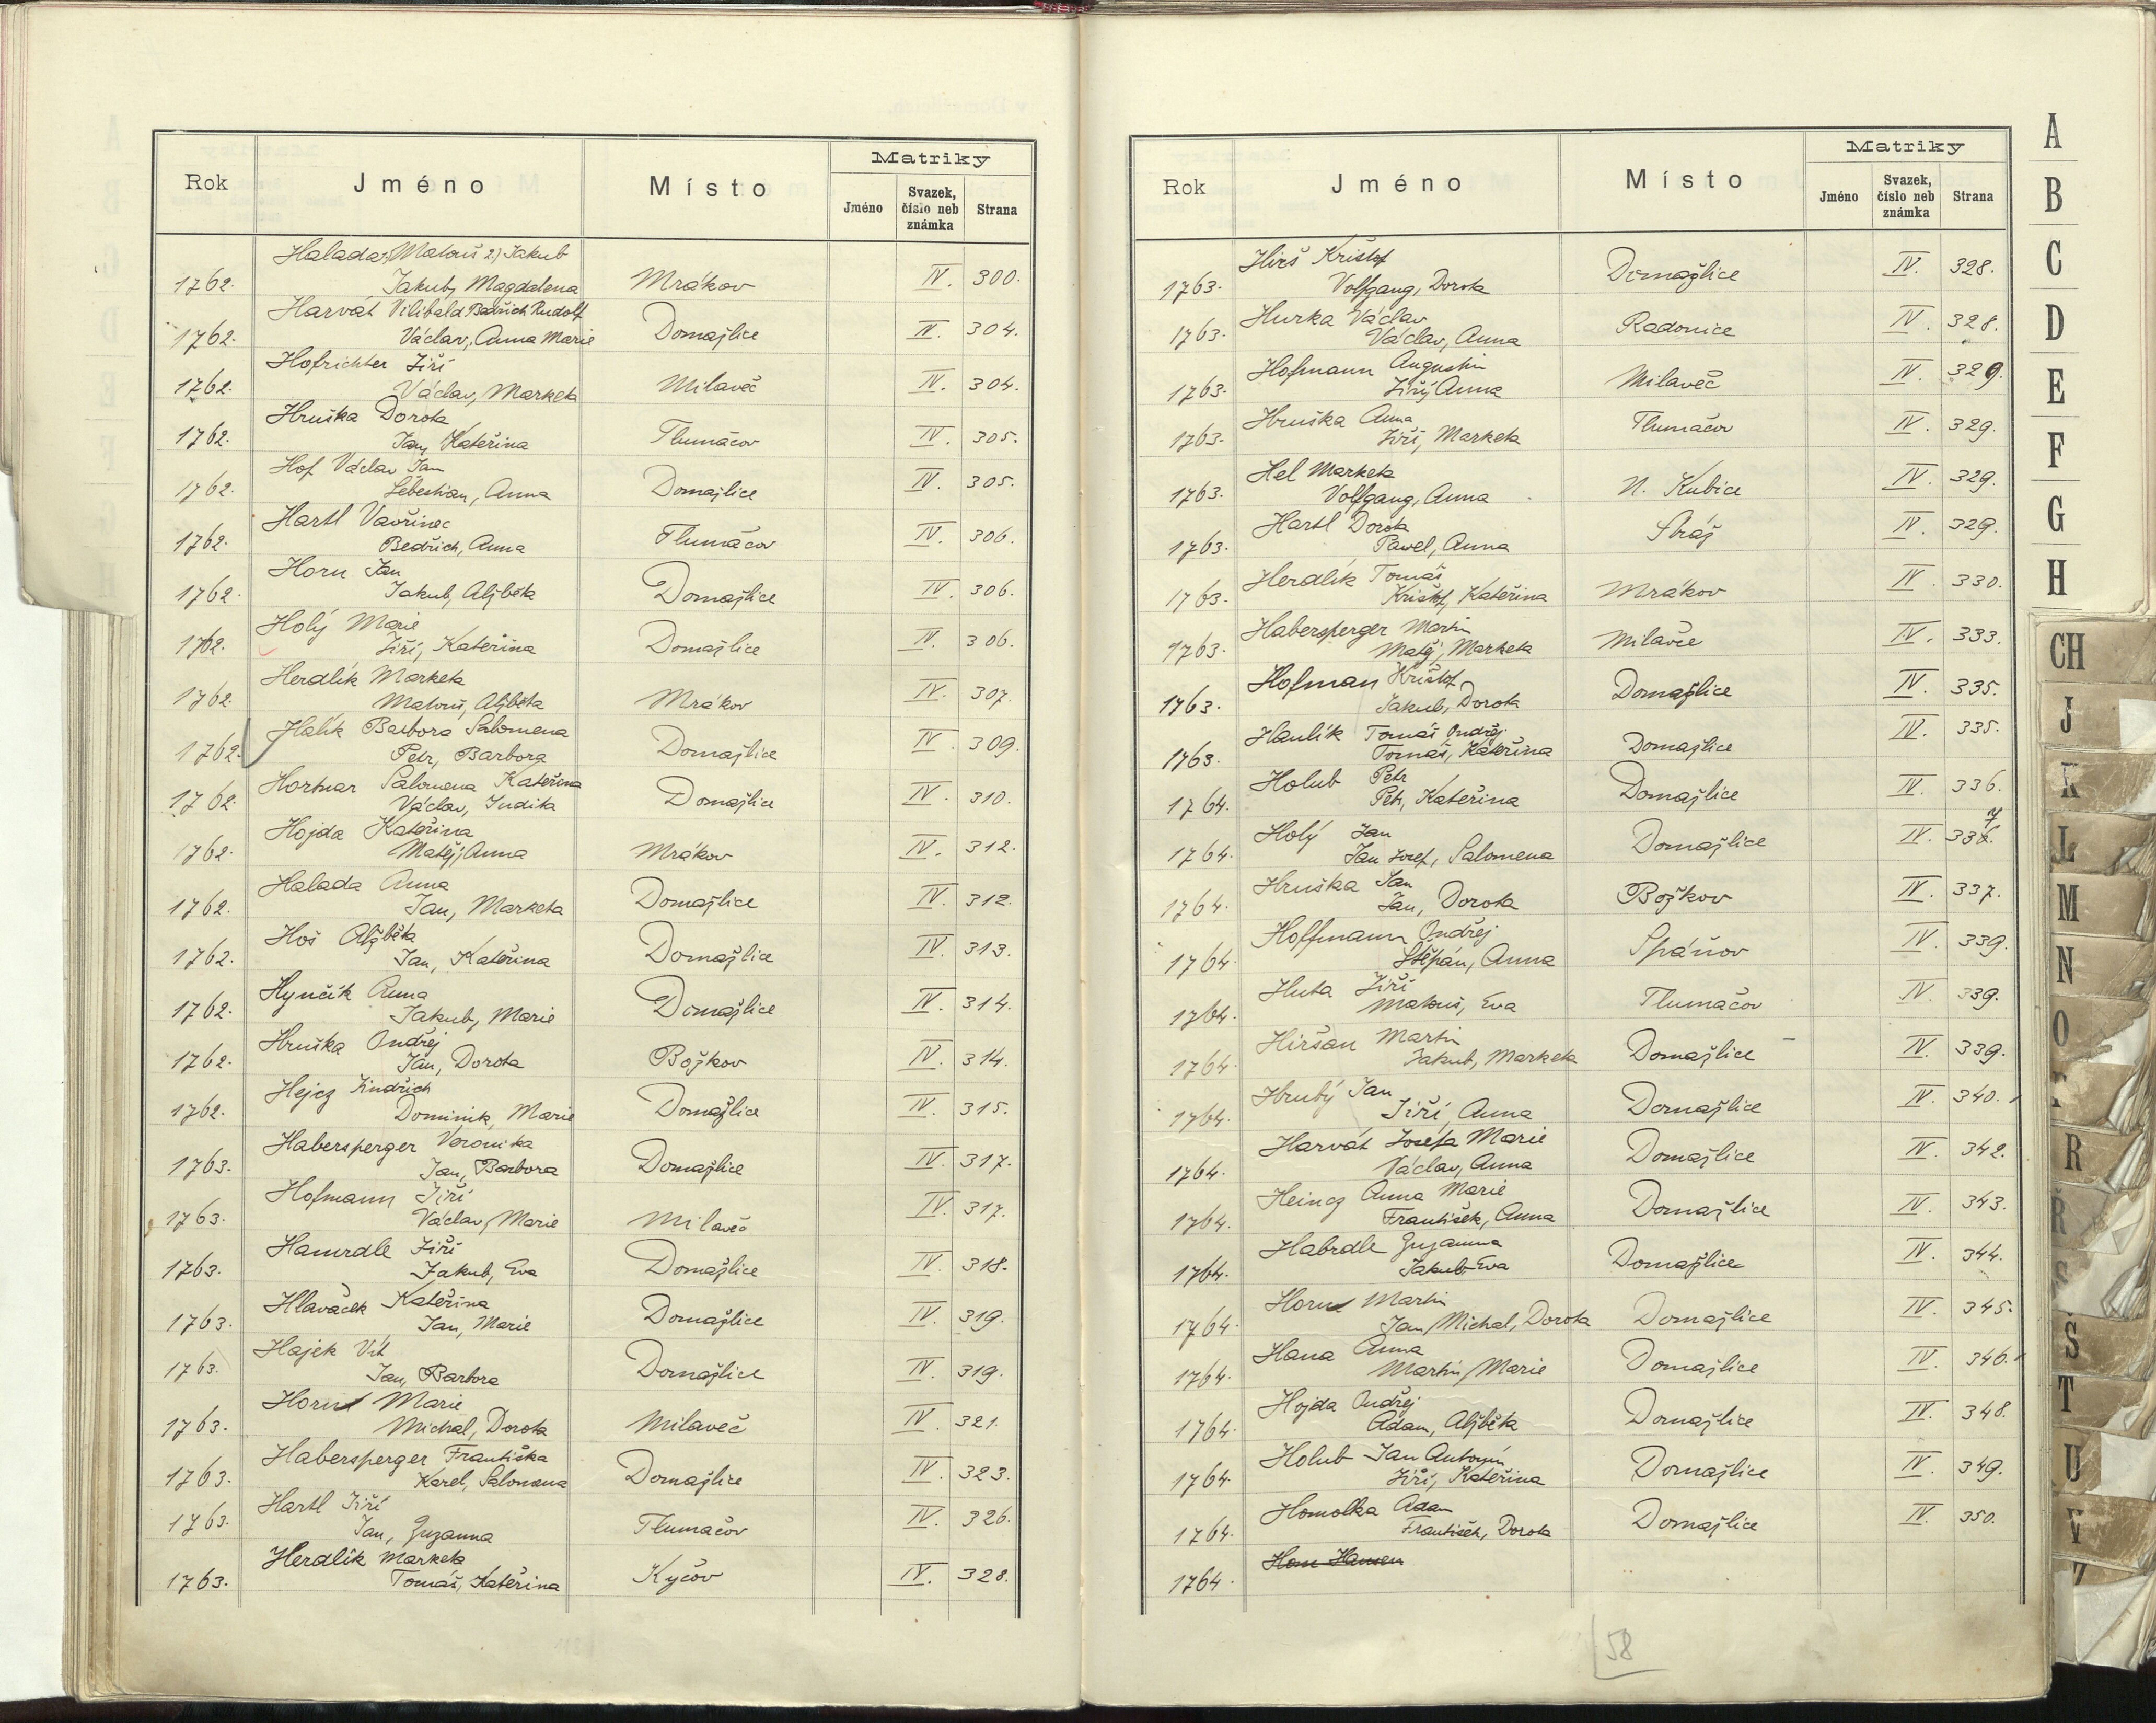 Rok Jméno Místo Matriky
Jméno Svazek, číslo neb známka Strana
Halada, Matouš 2) Jakub
1762. Jakub, Magdalena Mrákov IV. 300.
Harvát Vilibald Bedřich Rudolf
1762. Václav, Anna Marie Domažlice IV. 304.
Hofrichter Jiří
1762. Václav, Marketa Milaveč IV. 304.
Hruška Dorota
1762. Jan, Kateřina Tlumačov IV. 305.
Hof Václav Jan
1762. Šebestian, Anna Domažlice IV. 305.
Hartl Vavřinec
1762. Bedřich, Anna Tlumačov IV. 306.
Horn Jan
1762. Jakub, Alžběta Domažlice IV. 306.
Holý Marie
1762. Jiří, Kateřina Domažlice IV. 306.
Herdlík Marketa
1762. Matouš, Alžběta Mrákov IV. 307.
Halík Barbora Salomena
1762. Petr, Barbora Domažlice IV. 309.
Hortnar Salomena Kateřina
1762. Václav, Judita Domažlice IV. 310.
Hojda Kateřina
1762. Matěj, Anna Mrákov IV. 312.
Halada Anna
1762. Jan, Marketa Domažlice IV. 312.
Hoš Alžběta
1762. Jan, Kateřina Domažlice IV. 313.
Hynčík Anna
1762. Jakub, Marie Domažlice IV. 314.
Hruška Ondřej
1762. Jan, Dorota Božkov IV. 314.
Hejcz Jindřich
1762. Dominik, Marie Domažlice IV. 315.
Habersperger Veronika
1763. Jan, Barbora Domažlice IV. 317.
Hofmann Jiří
1763. Václav, Marie Milaveč IV. 317.
Hamrdle Jiří
1763. Jakub, Eva Domažlice IV. 318.
Hlaváček Kateřina
1763. Jan, Marie Domažlice IV. 319.
Hajek Vít
1763. Jan, Barbora Domažlice IV. 319.
Horn Marie
1763. Michal, Dorota Milaveč IV. 321.
Habersperger Františka
1763. Karel, Salomena Domažlice IV. 323.
Hartl Jiří
1763. Jan, Zuzanna Tlumačov IV. 326.
Herdlík Marketa
1763. Tomáš, Kateřina Kyčov IV. 328.
Rok Jméno Místo Matriky
Jméno Svazek, číslo neb známka Strana
Hirš Krištof
1763. Volfgang, Dorota Domažlice IV. 328.
Hurka Václav
1763. Václav, Anna Radonice IV. 328.
Hofmann Augustin
1763. Jiří, Anna Milaveč IV. 329.
Hruška Anna
1763. Jiří, Marketa Tlumačov IV. 329.
Hel Marketa
1763. Volfgang, Anna N. Kubice IV. 329.
Hartl Dorota
1763. Pavel, Anna Stráž IV. 329.
Herdlík Tomáš
1763. Krištof, Kateřina Mrákov IV. 330.
Habersperger Martin
1763. Matěj, Marketa Milavče IV. 333.
Hofman Krištof
1763. Jakub, Dorota Domažlice IV. 335.
Havlík Tomáš Ondřej
1763. Tomáš, Kateřina Domažlice IV. 335.
Holub Petr
1764. Petr, Kateřina Domažlice IV. 336.
Holý Jan
1764. Jan Josef, Salomena Domažlice IV. 337.
Hruška Jan
1764. Jan, Dorota Božkov IV. 337.
Hoffmann Ondřej
1764. Štěpán, Anna Spáňov IV. 339.
Huta Jiří
1764. Matouš, Eva Tlumačov IV. 339.
Hiršan Martin
1764. Jakub, Marketa Domažlice IV. 339.
Hrubý Jan
1764. Jiří, Anna Domažlice IV. 340.
Harvát Josefa Marie
1764. Václav, Anna Domažlice IV. 342.
Heincz Anna Marie
1764. František, Anna Domažlice IV. 343.
Habrdle Zuzanna
1764. Jakub Eva Domažlice IV. 344.
Horn Martin
1764. Jan Michal, Dorota Domažlice IV. 345.
Hana Anna
1764. Martin, Marie Domažlice IV. 346.
Hojda Ondřej
1764. Adam, Alžběta Domažlice IV. 348.
Holub Jan Antonín
1764. Jiří, Kateřina Domažlice IV. 349.
Homolka Adam
1764. František, Dorota Domažlice IV. 350.
1764.
58
A
B
C
D
E
F
G
H
CH
J
K
L
M
N
O
P
R
Ř
S
Š
T
U
V